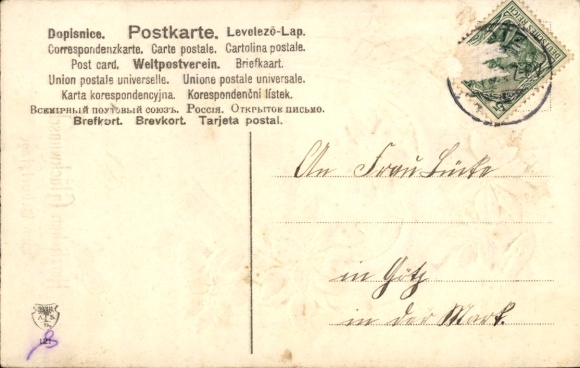 Dopisnice. Postkarte. Levelező-Lap.
Correspondenzkarte. Carte postale. Cartolina postale.
Post card. Weltpostverein. Briefkaart.
Union postale universelle. Unione postale universale.
Karta korespondencyjna. Korespondenční lístek.
Всемірный почтовый союзъ. Россія. Открытое письмо.
Brefkort. Brevkort. Tarjeta postal.
An Frau Lücke
in Götz
in der Mark.
127